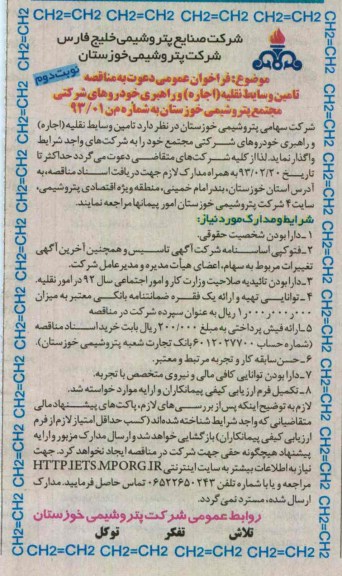 CH2=CH2 CH2=CH2 CH2=CH2 CH2=CH2 CH2=CH2
شرکت صنایع پتروشیمی خلیج فارس
شرکت پتروشیمی خوزستان
نوبت دوم
موضوع: فراخوان عمومی دعوت به مناقصه
تامین وسایط نقلیه (اجاره) و راهبری خودروهای شرکتی
مجتمع پتروشیمی خوزستان به شماره م‌ن ۹۳/۰۱
شرکت سهامی پتروشیمی خوزستان در نظر دارد تامین وسایط نقلیه (اجاره)
و راهبری خودروهای شرکتی مجتمع خود را به شرکت‌های واجد شرایط
واگذار نماید. لذا از کلیه شرکت‌های متقاضی دعوت می‌گردد حداکثر تا
تاریخ ۹۳/۰۲/۲۰ به همراه مدارک لازم جهت دریافت اسناد مناقصه، به
آدرس استان خوزستان، بندر امام خمینی، منطقه ویژه اقتصادی پتروشیمی،
سایت ۴ شرکت پتروشیمی خوزستان امور پیمانها مراجعه نمایند.
شرایط و مدارک مورد نیاز:
۱- دارا بودن شخصیت حقوقی.
۲- فتوکپی اساسنامه شرکت آگهی تاسیس و همچنین آخرین آگهی
تغییرات مربوط به سهام، اعضای هیأت مدیره و مدیر عامل شرکت.
۳- دارا بودن تائیدیه صلاحیت وزارت کار و امور اجتماعی سال ۹۲ در امور نقلیه.
۴- توانایی تهیه و ارائه یک فقره ضمانتنامه بانکی معتبر به میزان
۱٫۰۰۰٫۰۰۰٫۰۰۰ ریال به عنوان سپرده شرکت در مناقصه
۵- ارائه فیش پرداختی به مبلغ ۲۰۰/۰۰۰ ریال بابت خرید اسناد مناقصه
(شماره حساب ۶۰۱۲۰۲۷۷۰۰ بانک تجارت شعبه پتروشیمی خوزستان).
۶- حسن سابقه کار و تجربه مرتبط و معتبر.
۷- دارا بودن توانایی کافی مالی و نیروی متخصص با تجربه.
۸- تکمیل فرم ارزیابی کیفی پیمانکاران و ارایه موارد خواسته شد.
لازم به توضیح اینکه پس از بررسی‌های لازم، پاکت‌های پیشنهاد مالی
متقاضیانی که واجد شرایط شناخته شده‌اند (کسب حداقل امتیاز لازم از فرم
ارزیابی کیفی پیمانکاران) بازگشایی خواهد شد و ارسال مدارک مزبور و ارایه
پیشنهاد هیچگونه حقی جهت شرکت در مناقصه ایجاد نخواهد کرد. جهت
نیاز به اطلاعات بیشتر به سایت اینترنتی HTTP.IETS.MPORG.IR
مراجعه و یا با شماره تلفن ۰۶۵۲۲۶۵۰۲۴۳ تماس حاصل فرمایید. مدارک
ارسال شده، مسترد نمی گردد.
روابط عمومی شرکت پتروشیمی خوزستان
تلاش تفکر توکل
CH2=CH2 CH2=CH2 CH2=CH2 CH2=CH2 CH2=CH2